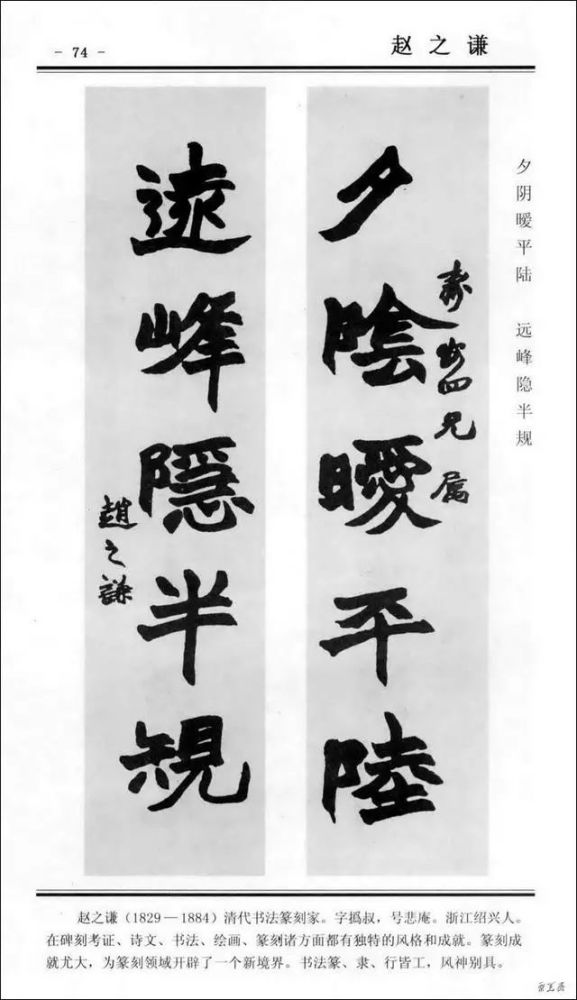 - 74 -
赵之谦
夕陰曖平陸
四兄属
遠峰隱半規
趙之謙
夕阴暧平陆 远峰隐半规
赵之谦(1829—1884)清代书法篆刻家。字撝叔，号悲庵。浙江绍兴人。
在碑刻考证、诗文、书法、绘画、篆刻诸方面都有独特的风格和成就。篆刻成
就尤大，为篆刻领域开辟了一个新境界。书法篆、隶、行皆工，风神别具。